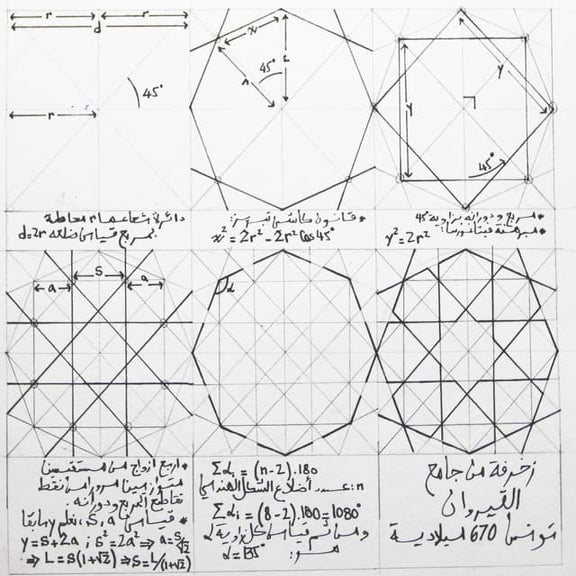 r r
d
45°
r
x
r
45°
r
y
y
45°
دائرة شعاعها r محاطة
بمربع قياس ضلعه d=2r
* قانون كاشي نبرز:
x² = 2r² - 2r² cos45°
* مربع ودورانه بزاوية 45
* مبرهنة فيثاغورس:
y² = 2r²
S
a a
α
* أربع أزواج من مستقيمين
متوازيين مرورا من نقط
تقاطع المربع ودورانه.
* قياس a، S، نعلم y سابقا
y = S+2a ; S² = 2a² ⇒ a = S/√2
⇒ L = S(1+√2) ⇒ S = L/(1+√2)
Σαᵢ = (n-2).180
n: عدد أضلاع الشكل الهندسي
Σαᵢ = (8-2).180 = 1080°
ومن ثم قياس كل زاوية α
هو: α = 135°
زخرفة من جامع
القيروان
تونس 670 ميلادية